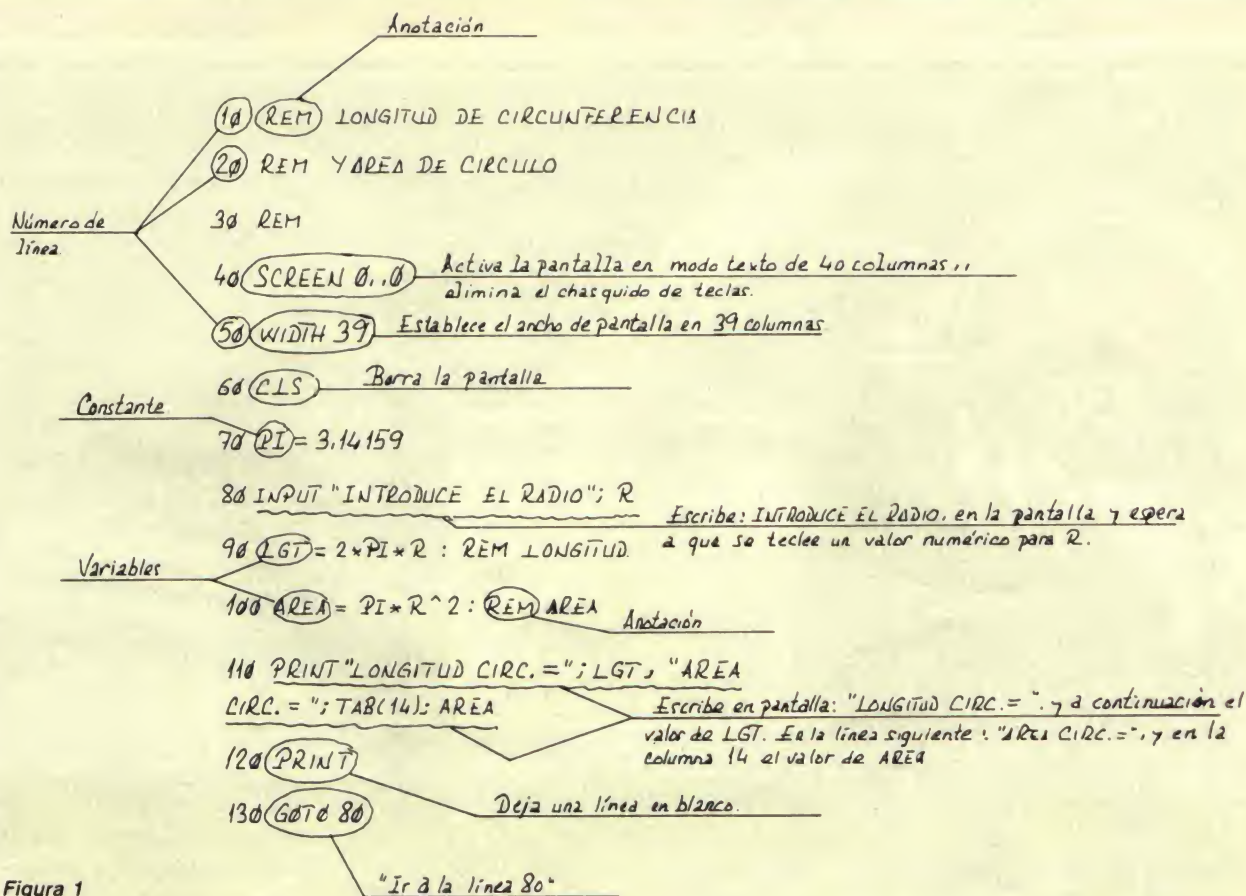 Anotación
10 REM LONGITUD DE CIRCUNFERENCIA
20 REM Y AREA DE CIRCULO
Número de
línea
30 REM
40 SCREEN 0,,0 Activa la pantalla en modo texto de 40 columnas,,
elimina el chasquido de teclas.
50 WIDTH 39 Establece el ancho de pantalla en 39 columnas
60 CLS Borra la pantalla
Constante
70 PI = 3.14159
80 INPUT "INTRODUCE EL RADIO"; R
Escribe: INTRODUCE EL RADIO, en la pantalla y espera
a que se teclee un valor numérico para R.
90 LGT = 2*PI*R : REM LONGITUD
Variables
100 AREA = PI*R^2 : REM AREA
Anotación
110 PRINT "LONGITUD CIRC. ="; LGT, "AREA
CIRC. = "; TAB(14); AREA
Escribe en pantalla: "LONGITUD CIRC. = ". y a continuación el
valor de LGT. En la línea siguiente: "AREA CIRC. =", y en la
columna 14 el valor de AREA
120 PRINT
Deja una línea en blanco.
130 GOTO 80
"Ir a la línea 80"
Figura 1